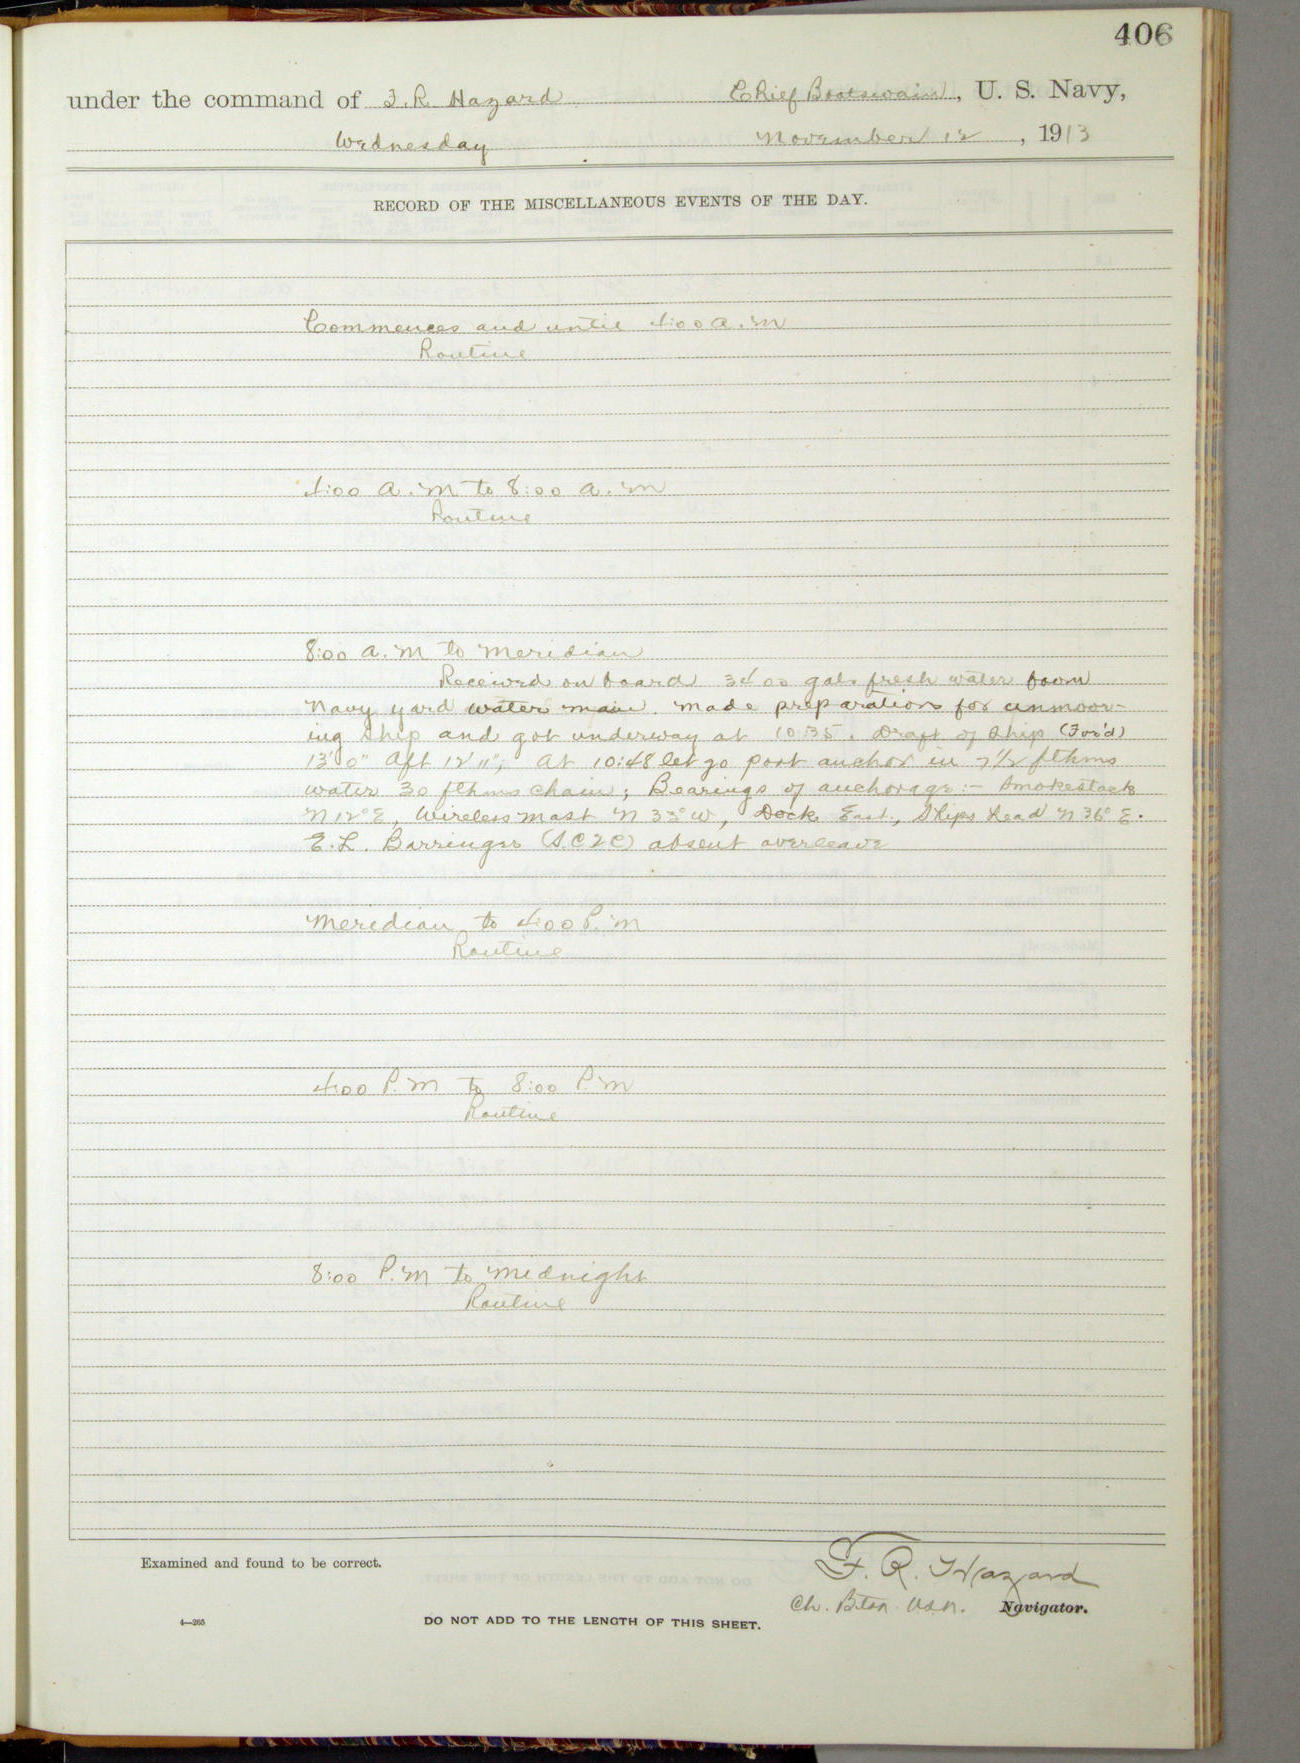 406
under the command of F. R. Hazard Chief Boatswain, U. S. Navy,
Wednesday November 12, 1913
RECORD OF THE MISCELLANEOUS EVENTS OF THE DAY.
Commences and until 4:00 a.m
Routine
4:00 a.m to 8:00 a.m
Routine
8:00 a.m to Meridian
Received on board 3400 gals fresh water from
Navy yard water main. Made preparations for unmoor-
ing ship and got underway at 10:35. Draft of ship (For'd)
13' 0" Aft 12' 11"; At 10:48 let go port anchor in 7 1/2 fthms
water 30 fthms chain; Bearings of anchorage:- Smokestack
N 12° E, Wireless mast N 33° W, Dock East, Ships Head N 36° E.
E. L. Barringer (S.C2C) absent overleave
Meridian to 4:00 P.M
Routine
4:00 P.M to 8:00 P.M
Routine
8:00 P.M to Midnight
Routine
Examined and found to be correct.
F. R. Hazard
Ch. Btsn. U.S.N. Navigator.
4—265
DO NOT ADD TO THE LENGTH OF THIS SHEET.